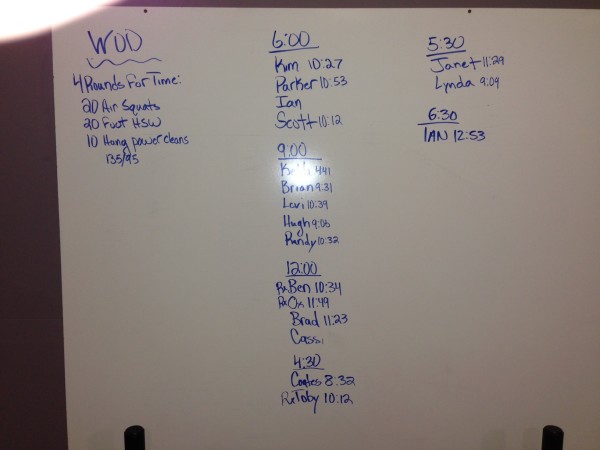 WOD
4 Rounds For Time:
20 Air Squats
20 Foot HSW
10 Hang power cleans
135/95
6:00
Kim 10:27
Parker 10:53
Ian
Scott 10:12
9:00
Brian 9:31
Levi 10:39
Hugh 9:06
Randy 10:32
12:00
Rx Ben 10:34
Rx Ox 11:49
Brad 11:23
Cassi
4:30
Coates 8:32
Rx Toby 10:12
5:30
Janet 11:29
Lynda 9:09
6:30
IAN 12:53